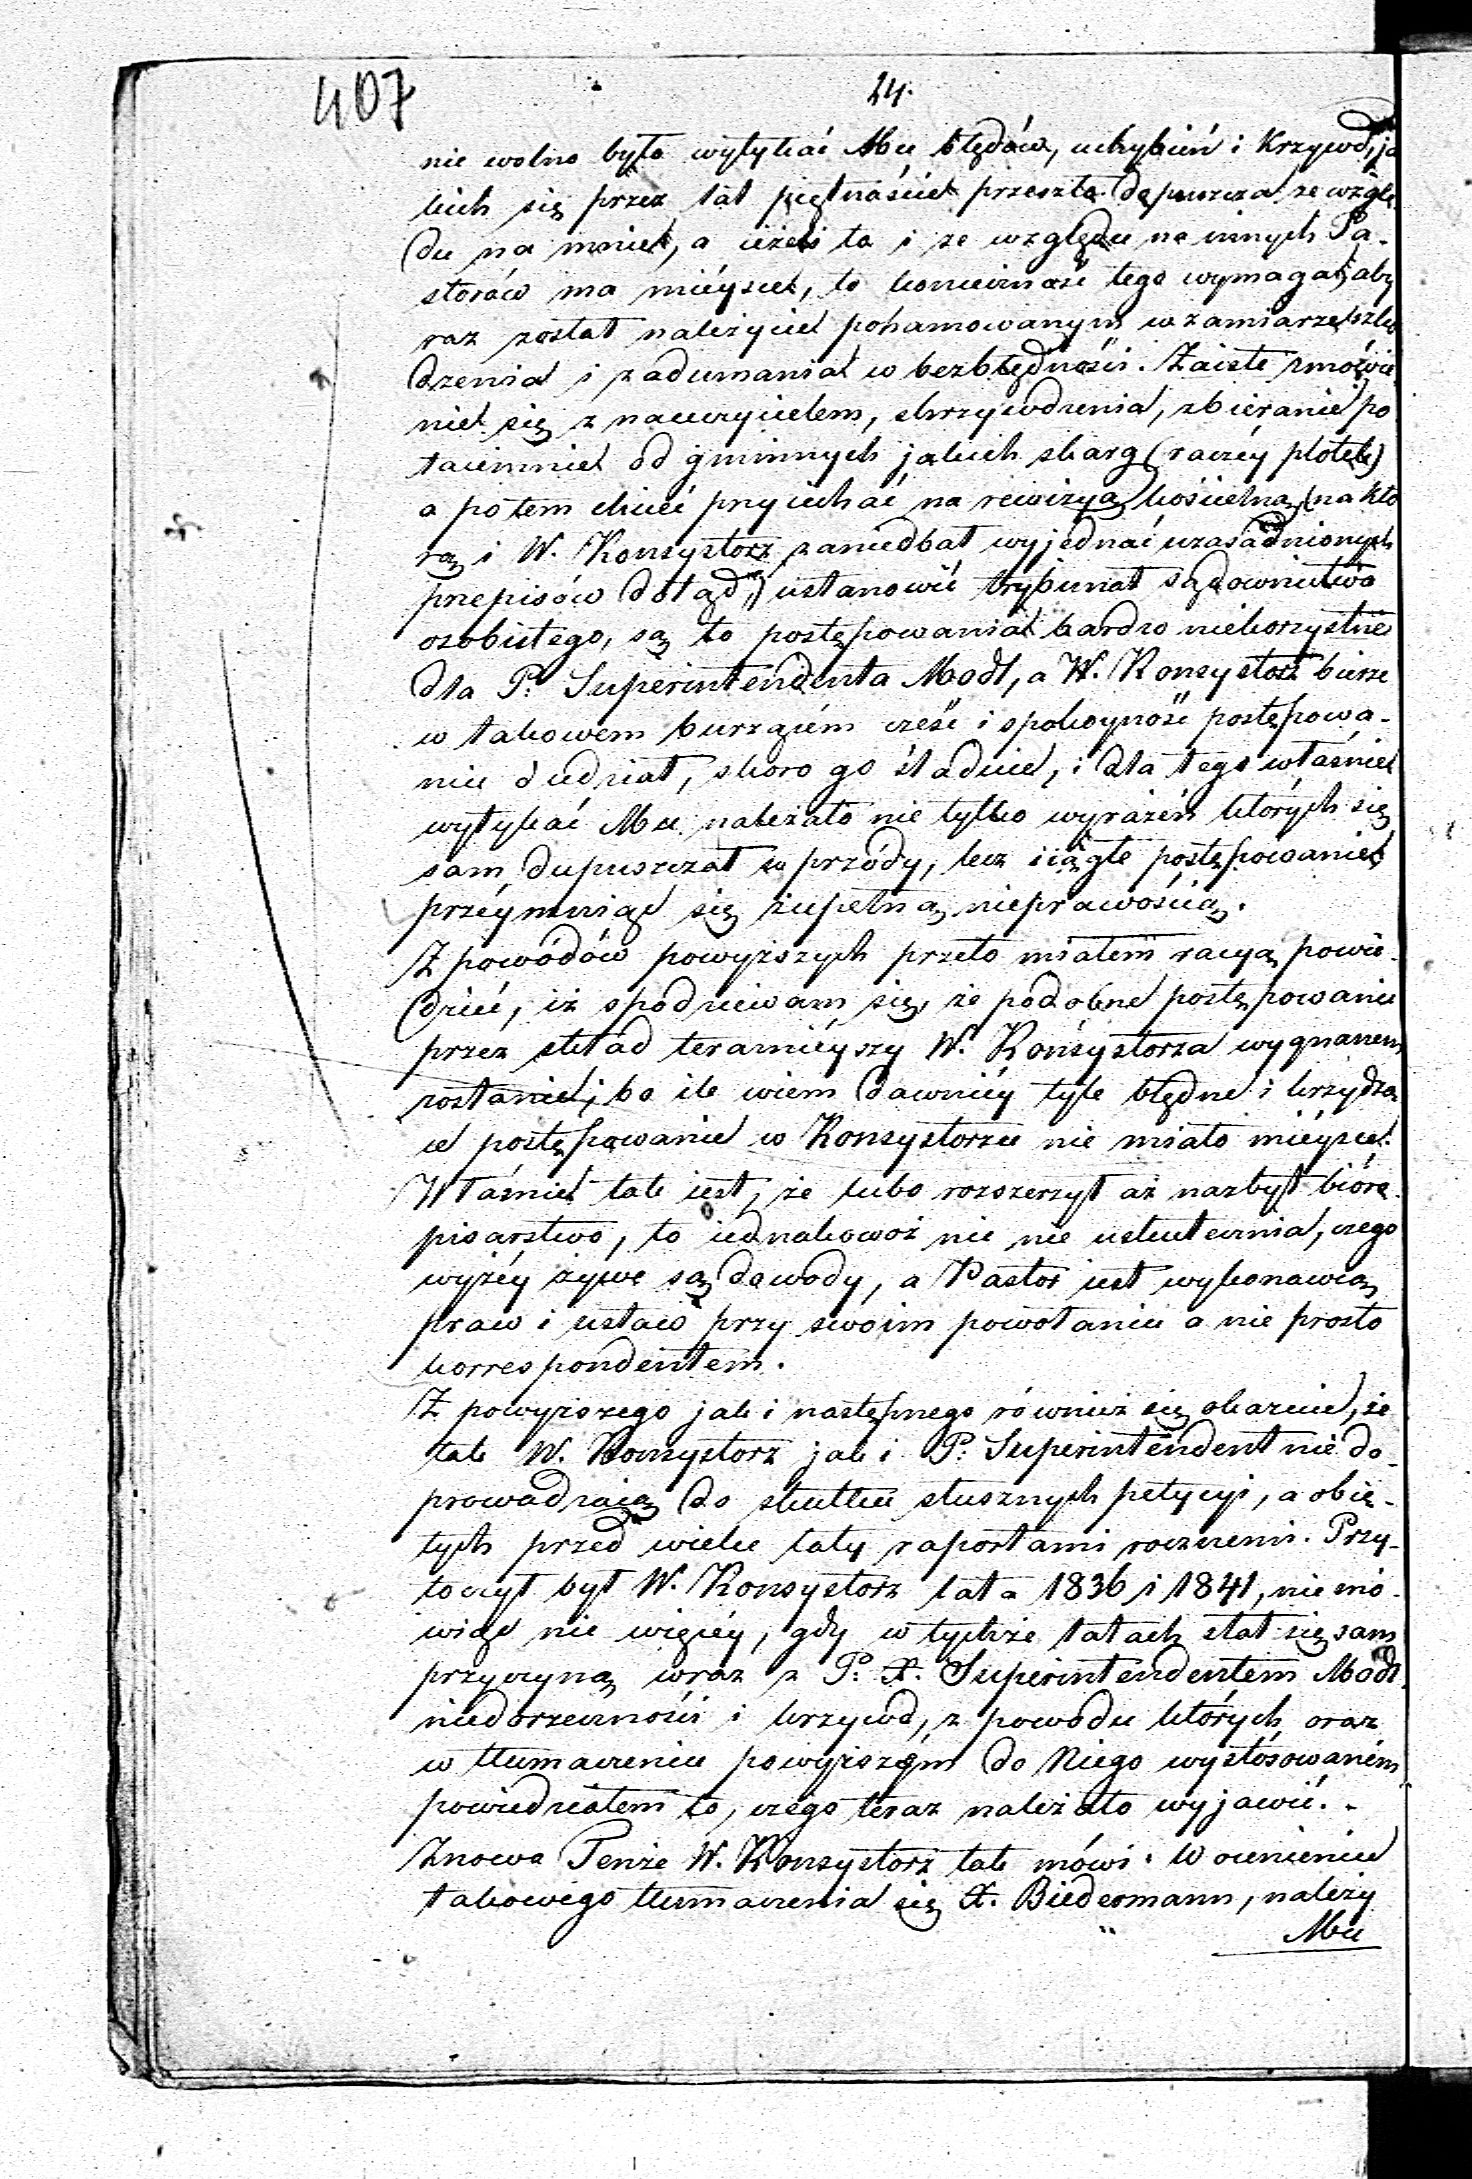 407
24.
nie wolno było wytykać Mu błędów, uchybień i Krzywd, ja
kich się przez lat piętnaście przeszło dopuszcza ze wzglę-
du na mnie, a ieżeli to i ze względu na innych Pa-
storów ma mieysce, to konieczność tego wymagała, aby
raz został należycie pohamowanym w zamiarze szko
dzenia i zadumania w bezbłędności. Zaiste zmówie
nie się z nauczycielem, skrzywdzenia, zbieranie po
taiemnie od gminnych jakich skarg (raczéy plotek)
a potem chcieć przyjechać na rewizyą kościelną, (na któ
rą i W. Konsystorz zaniedbał wyjednać uzasadnionych
przepisów dotąd,) ustanowić trybunał sądownictwa
osobistego, są to postępowania bardzo niekorzystne
dla P. Superintendenta Modl, a W. Konsystorz bierze
w takowem burzącém cześć i spokoyność postępowa-
niu udział, skoro go śladuie, i dla tego właśnie
wytykać Mu należało nie tylko wyrażeń których się
sam dupuszczał w przódy, lecz ciągłe postępowanie
przéymuiąc się zupełną nieprawością.
Z powodów powyższych przeto miałem racyą powie-
dzieć, iż spodziewam się, że podobne postępowanie
przez skład teraźniéyszy W. Konsystorza wygnanem
zostanie, bo ile wiem dawniéy tyle błędne i krzydzą
ce postępowanie w Konsystorzu nie miało miéysce.
Właśnie tak iest, że lubo rozszerzył aż nazbyt bióro
pisarstwo, to iednakowoż nic nie uskutecznia, czego
wyżéy żywe są dowody, a Pastor iest wykonawcą
praw i ustaw przy swoim powołaniu a nie prosto
korrespondentem.
Z powyższego jak i następnego również się okazuie, że
tak W. Konsystorz jak i P. Superintendent nie do-
prowadzaią do skutku słusznych petycyi, a obię-
tych przed wielu laty raportami rocznemi. Przy-
toczył był W. Konsystorz lata 1836 i 1841, nie mó-
wiąc nic więcéy, gdy w tychże latach stał się sam
przyczyną wraz z P. X. Superintendentem Modl
niedorzeczności i krzywd, z powodu których oraz
w tłumaczeniu powyższém do Niego wystósowaném
powiedziałem to, czego teraz należało wyjawić. -
Znowu Tenże W. Konsystorz tak mówi: W ocenieniu
takowego tłumaczenia się X. Biedermann, należy
Mu